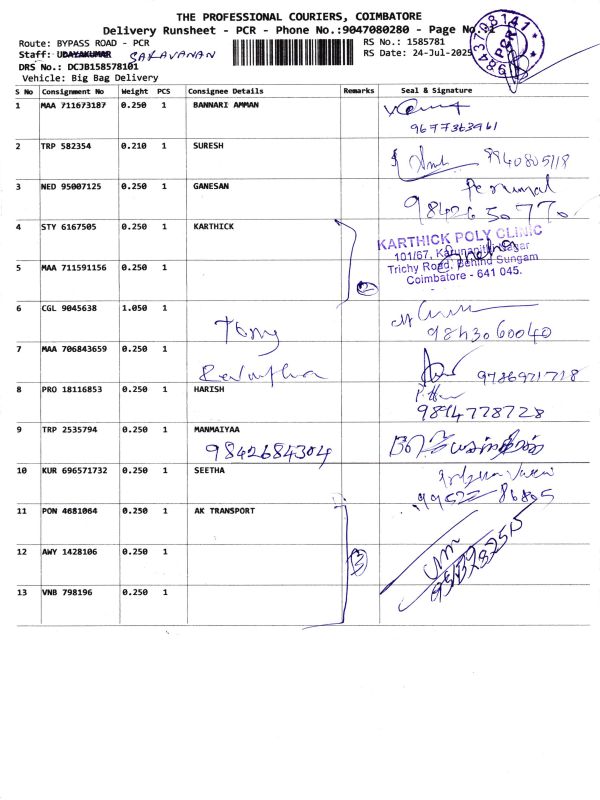 THE PROFESSIONAL COURIERS, COIMBATORE
Delivery Runsheet - PCR - Phone No.:9047080280 - Page No.:1
Route: BYPASS ROAD - PCR
RS No.: 1585781
Staff: UDAYAKUMAR SARAVANAN
RS Date: 24-Jul-2025
DRS No.: DCJB158578101
Vehicle: Big Bag Delivery
PCR
S No Consignment No Weight PCS Consignee Details Remarks Seal & Signature
1 MAA 711673187 0.250 1 BANNARI AMMAN
9677363961
2 TRP 582354 0.210 1 SURESH
9940805118
3 NED 95007125 0.250 1 GANESAN
Perumal
9842650770
4 STY 6167505 0.250 1 KARTHICK
KARTHICK POLY CLINIC
101/67, Karunanithi Nagar
Trichy Road, Behind Sungam
Coimbatore - 641 045.
5 MAA 711591156 0.250 1
2
6 CGL 9045638 1.050 1 Tony
9843060040
7 MAA 706843659 0.250 1 Revathi
9786971718
8 PRO 18116853 0.250 1 HARISH
9894778728
9 TRP 2535794 0.250 1 MANMAIYAA
9842684304
10 KUR 696571732 0.250 1 SEETHA
99522 86805
11 PON 4681064 0.250 1 AK TRANSPORT
12 AWY 1428106 0.250 1
3
13 VNB 798196 0.250 1